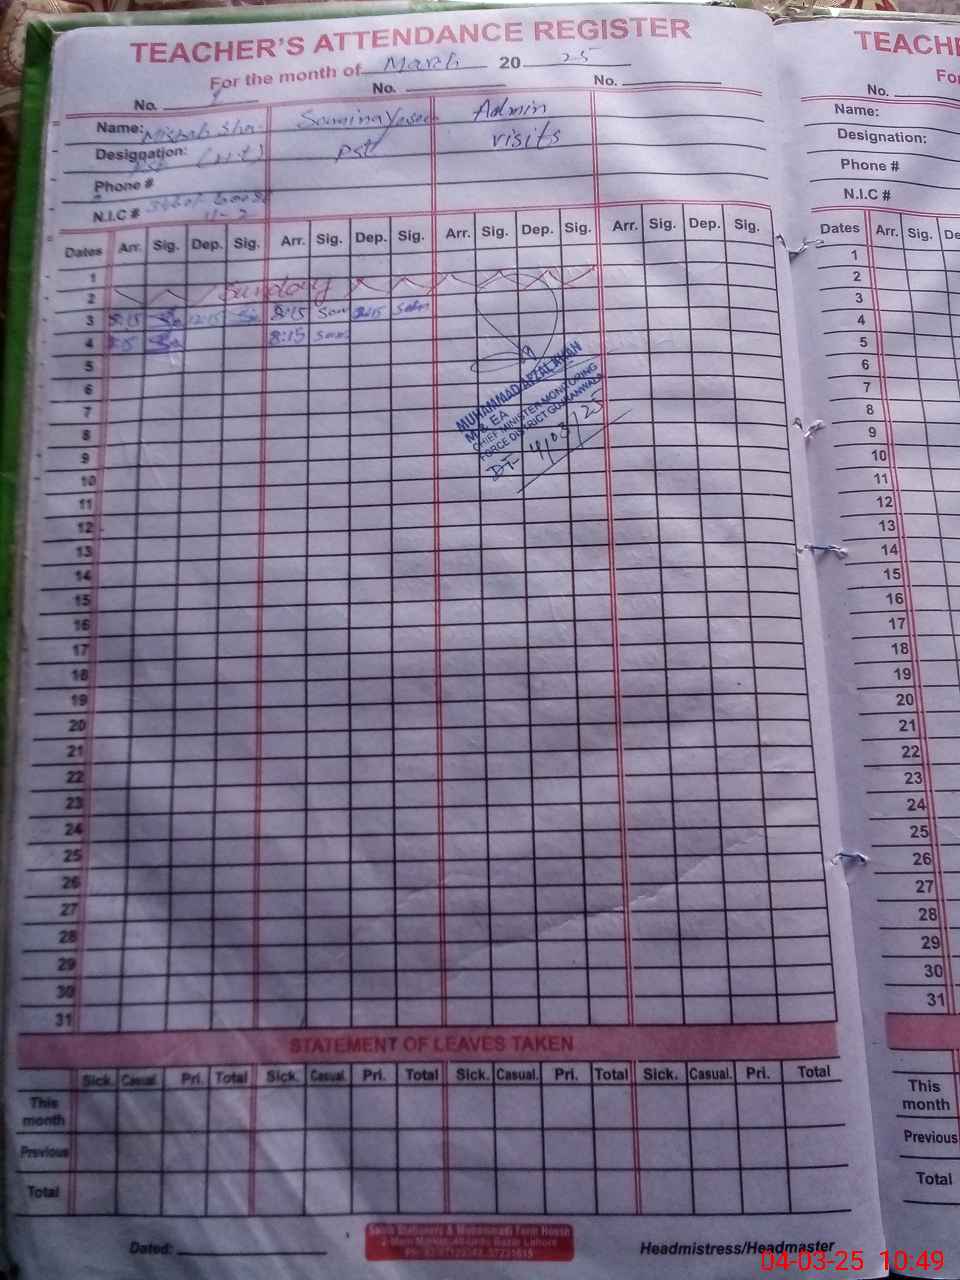 TEACHER'S ATTENDANCE REGISTER
For the month of March 20 25
No. No. No.
Name: Misbah Samina Admin
Designation: PST visits
Phone #
N.I.C #
Dates Arr. Sig. Dep. Sig. Arr. Sig. Dep. Sig. Arr. Sig. Dep. Sig. Arr. Sig. Dep. Sig.
1
2 Sunday
3 8:15 12:15 8:15
4 8:15 8:15
5
6
7
8
9
10
11
12
13
14
15
16
17
18
19
20
21
22
23
24
25
26
27
28
29
30
31
MUHAMMAD AFZAL KHAN
M & EA
CHIEF MINISTER MONITORING
FORCE DISTRICT GUJRANWALA
DT- 4/03/25
STATEMENT OF LEAVES TAKEN
Sick. Casual. Pri. Total Sick. Casual. Pri. Total Sick. Casual. Pri. Total Sick. Casual. Pri. Total
This month
Previous
Total
Dated:
Headmistress/Headmaster
TEACH
No.
Name:
Designation:
Phone #
N.I.C #
Dates Arr. Sig.
1
2
3
4
5
6
7
8
9
10
11
12
13
14
15
16
17
18
19
20
21
22
23
24
25
26
27
28
29
30
31
This month
Previous
Total
04-03-25 10:49